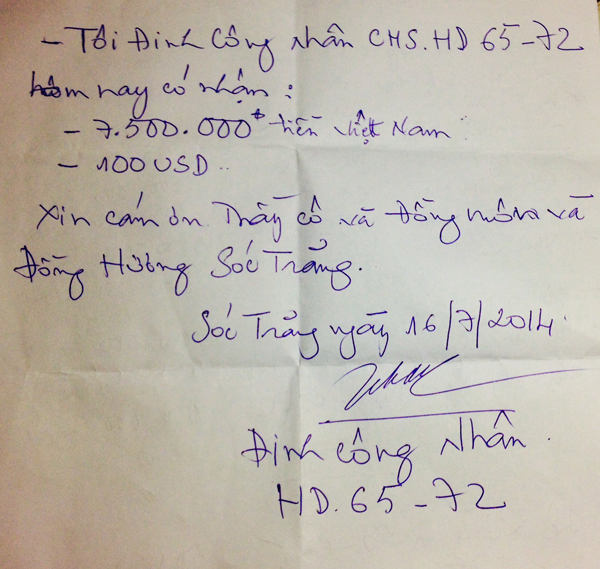 - Tôi Đinh Công Nhân CHS.HD 65-72
hôm nay có nhận :
- 7.500.000đ tiền Việt Nam
- 100 USD
Xin cám ơn Thầy cô và Đồng môn và
Đồng Hương Sóc Trăng.
Sóc Trăng ngày 16/7/2014.
Đinh Công Nhân
HD. 65-72